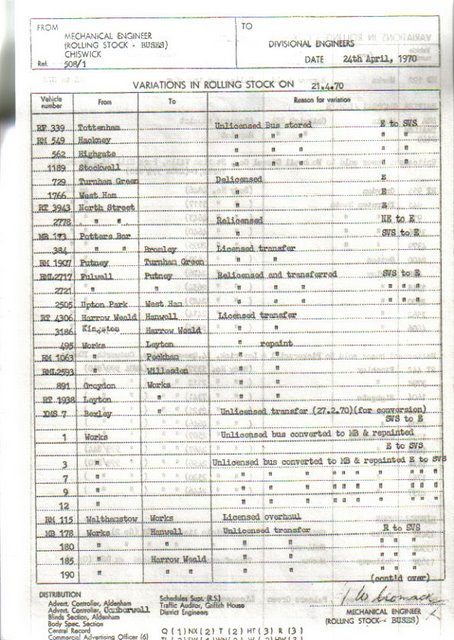 FROM
TO
MECHANICAL ENGINEER
(ROLLING STOCK - BUSES)
CHISWICK
DIVISIONAL ENGINEERS
Ref. 508/1
DATE 24th April, 1970
VARIATIONS IN ROLLING STOCK ON 21.4.70
Vehicle number From To Reason for variation
RF 339 Tottenham Unlicensed Bus stored E to SVS
RM 549 Hackney " " " " " "
562 Highgate " " " " " "
1189 Stockwell " " " " " "
729 Turnham Green Delicensed E
1766 West Ham " E
RT 3943 North Street " E
2778 " " Relicensed NE to E
MB 173 Potters Bar " SVS to E
384 " " Bromley Licensed transfer
RM 1907 Putney Turnham Green " "
RML2717 Fulwell Putney Relicensed and transferred SVS to E
2721 " " " " " " " "
2505 Upton Park West Ham " " " " " "
RT 4306 Harrow Weald Hanwell Licensed transfer
3186 Kingston Harrow Weald " "
495 Works Leyton " repaint
RM 1063 " Peckham " "
RML2593 " Willesden " "
891 Croydon Works " "
RT 1938 Leyton " " "
XMS 7 Bexley " Unlicensed transfer (27.2.70)(for conversion)
SVS to E
1 Works Unlicensed bus converted to MB & repainted
E to SVS
3 " Unlicensed bus converted to MB & repainted E to SVS
7 " " " " " " " " " "
9 " " " " " " " " " "
12 " " " " " " " " " "
RM 115 Walthamstow Works Licensed overhaul
MB 178 Works Hanwell Unlicensed transfer E to SVS
180 " " " " " " "
185 " Harrow Weald " " " " "
190 " " " " " " " "
(contd over)
DISTRIBUTION
Advert. Controller, Aldenham
Advert. Controller, Camberwell
Blinds Section, Aldenham
Body Spec. Section
Central Record
Commercial Advertising Officer (6)
Schedules Supt. (R.S.)
Traffic Auditor, Griffith House
District Engineers
MECHANICAL ENGINEER
(ROLLING STOCK - BUSES)
Q (1) NX(2) T (2) HT(3) R (3)